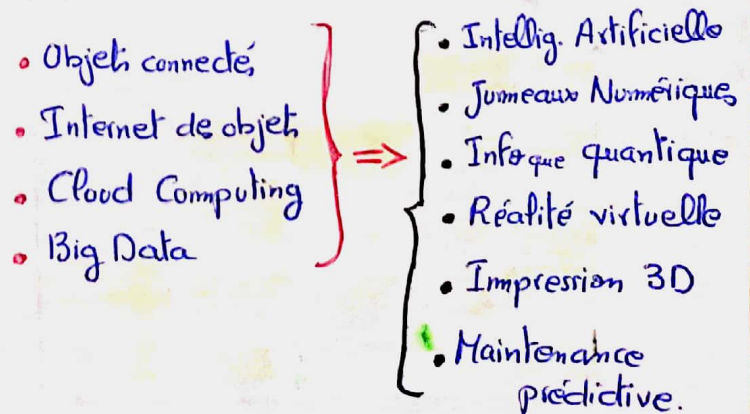 • Objets connectés
• Internet de objets
• Cloud Computing
• Big Data
⇒
• Intellig. Artificielle
• Jumeaux Numériques
• Infoque quantique
• Réalité virtuelle
• Impression 3D
• Maintenance
prédictive.